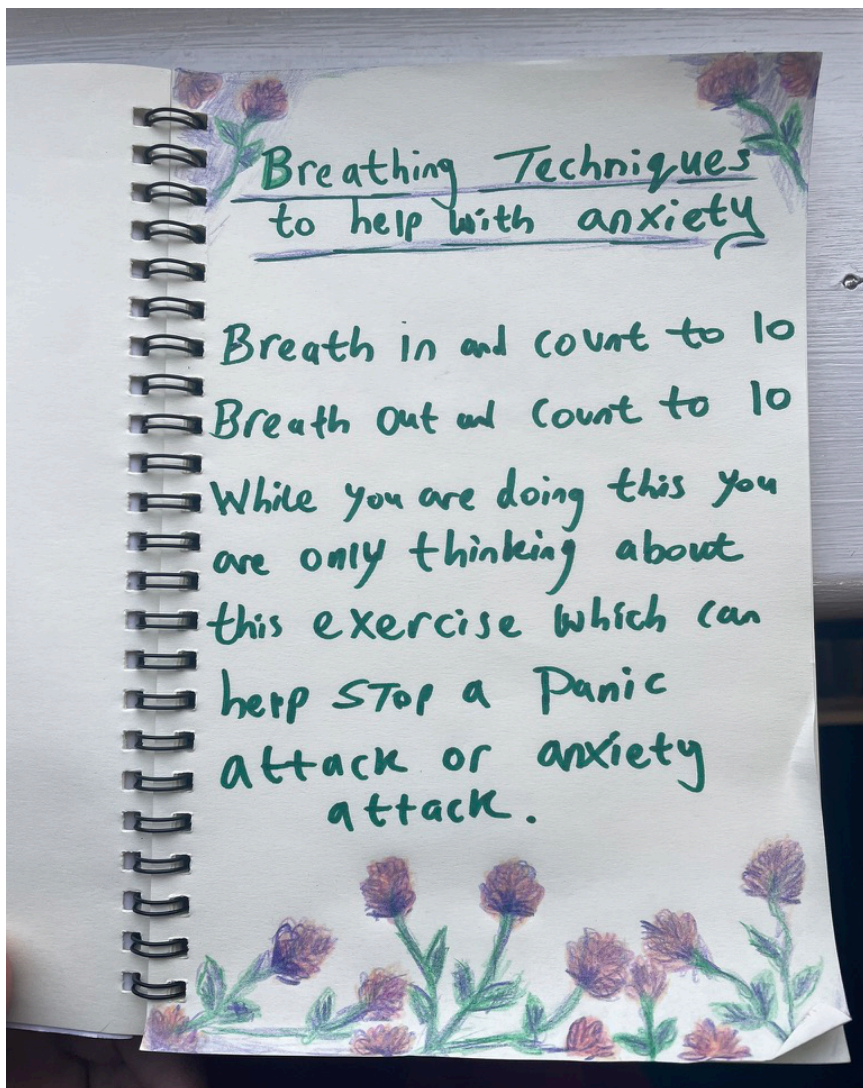 Breathing Techniques
to help with anxiety
Breath in and count to 10
Breath out and count to 10
While you are doing this you
are only thinking about
this exercise which can
help stop a Panic
attack or anxiety
attack.